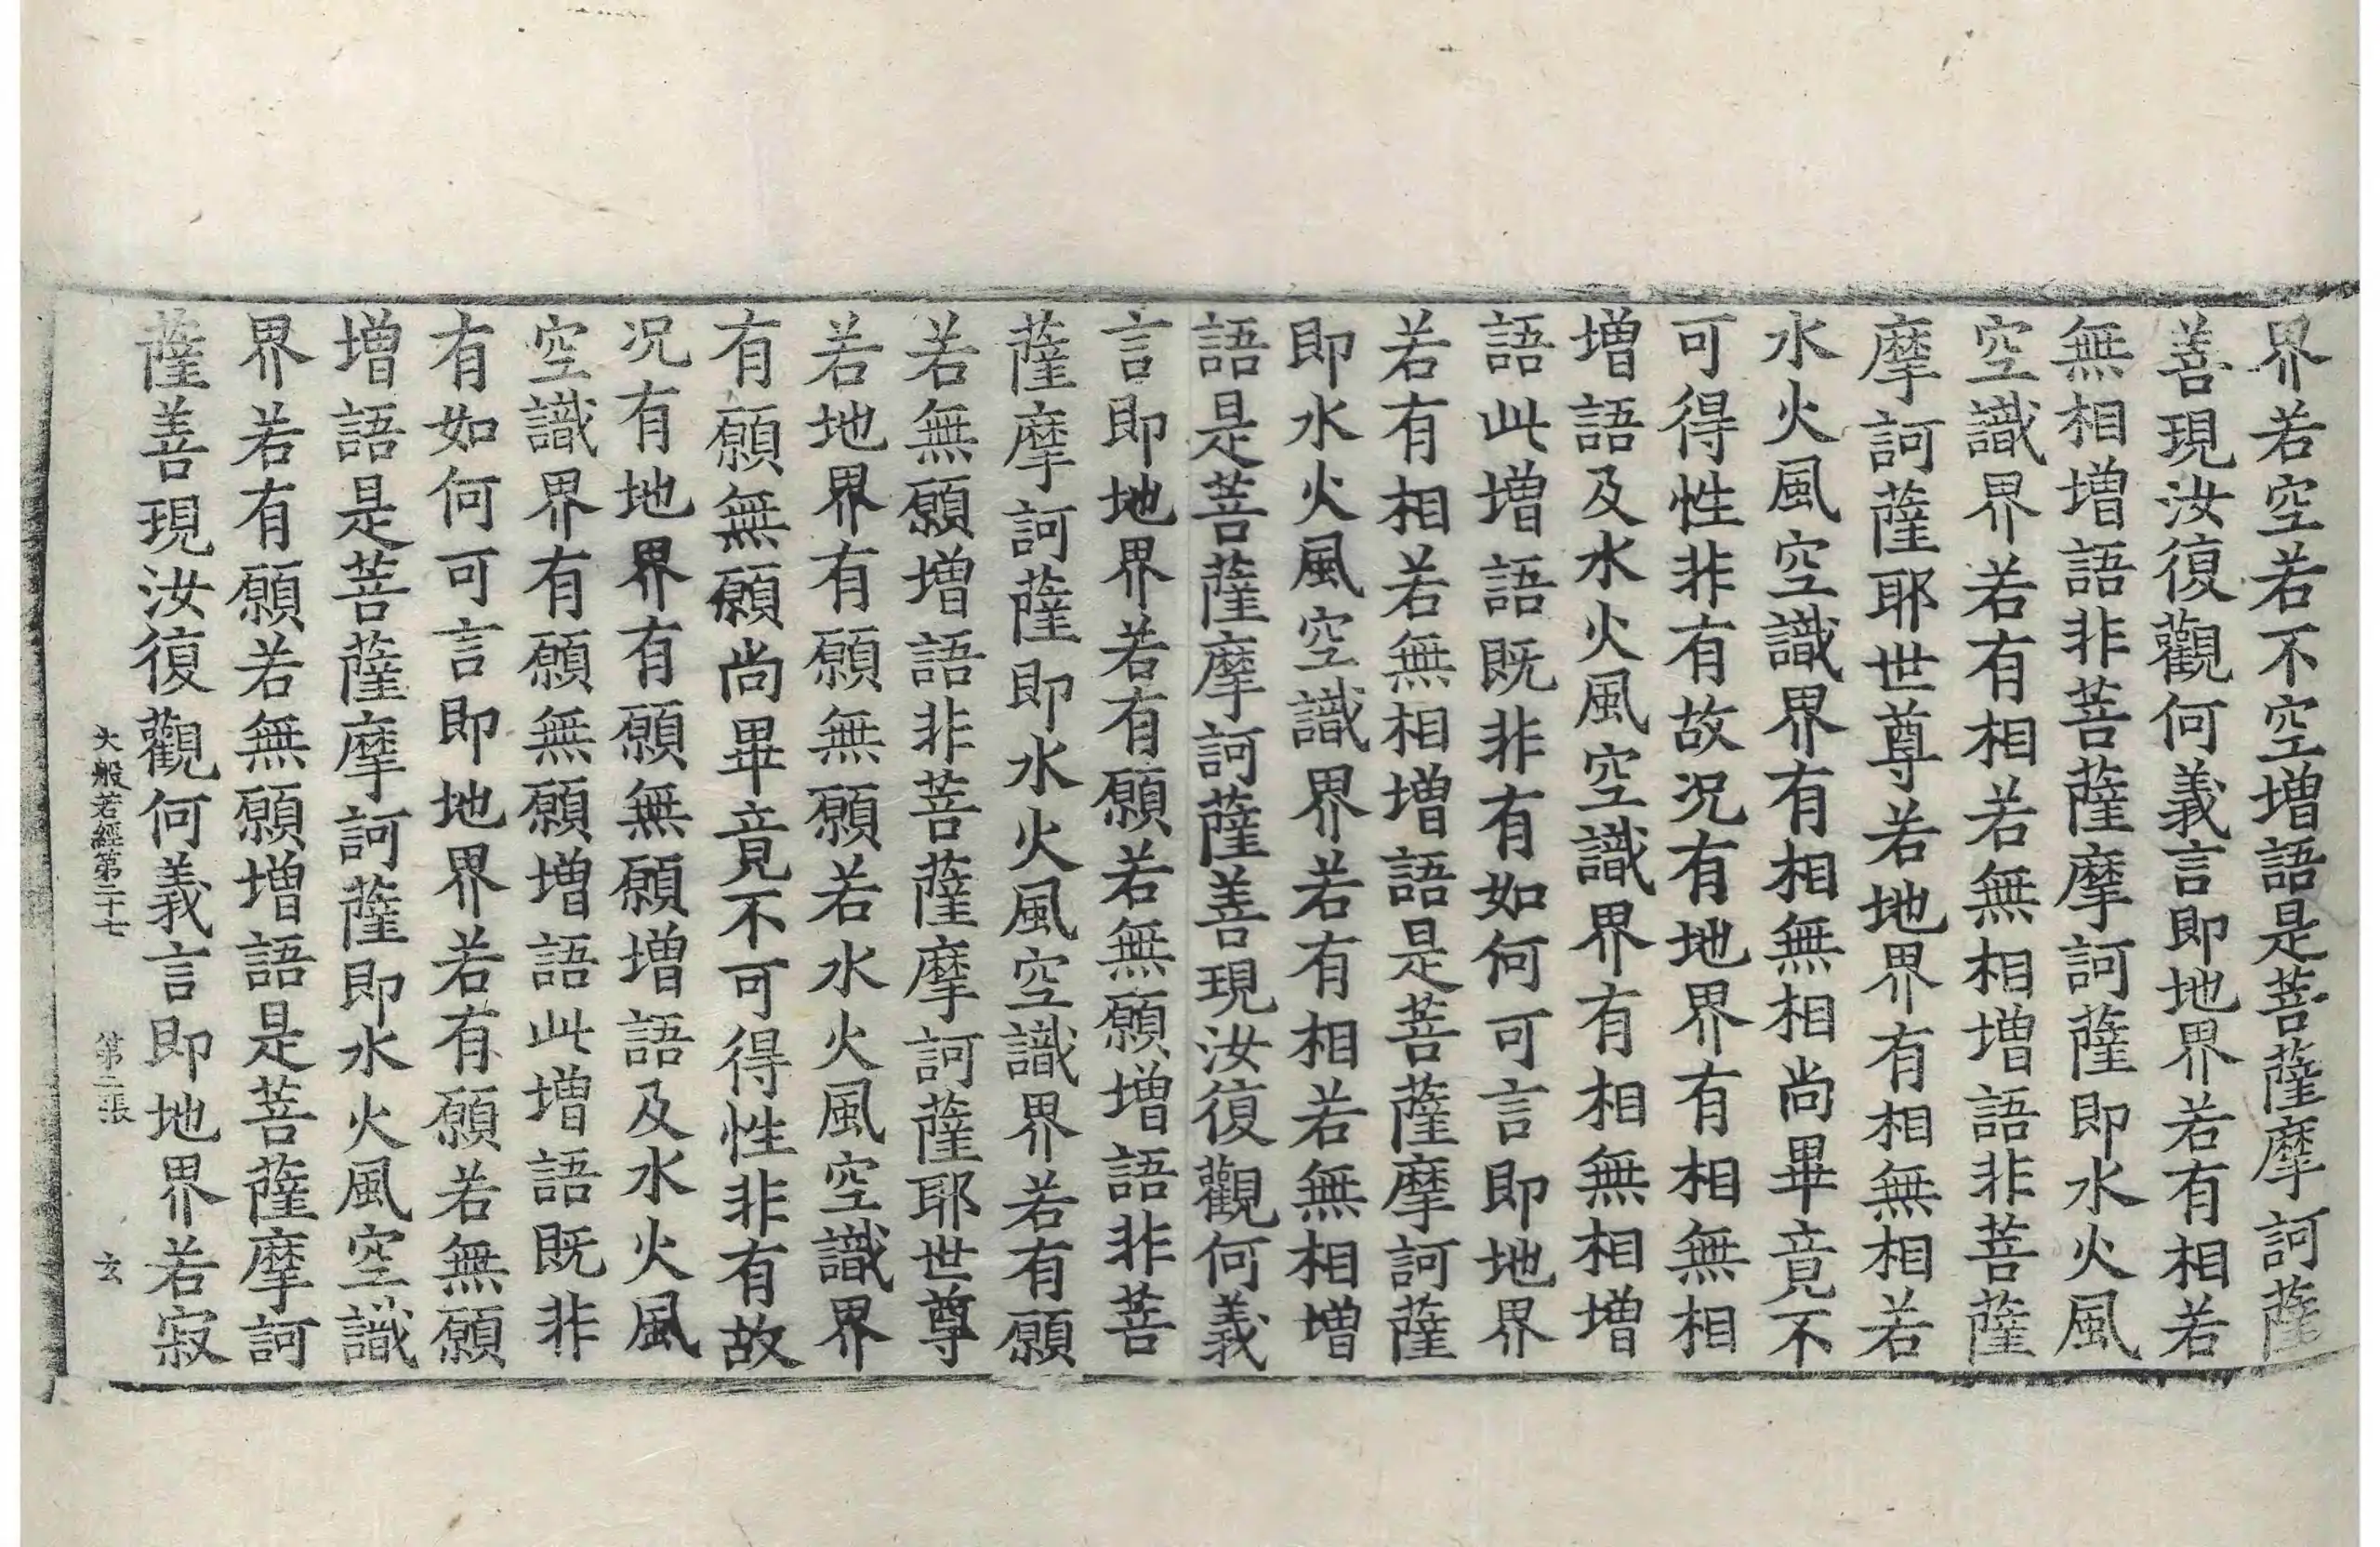 界若空若不空增語是菩薩摩訶薩
善現汝復觀何義言即地界若有相若
無相增語非菩薩摩訶薩即水火風
空識界若有相若無相增語非菩薩
摩訶薩耶世尊若地界有相無相若
水火風空識界有相無相尚畢竟不
可得性非有故況有地界有相無相
增語及水火風空識界有相無相增
語此增語既非有如何可言即地界
若有相若無相增語是菩薩摩訶薩
即水火風空識界若有相若無相增
語是菩薩摩訶薩善現汝復觀何義
言即地界若有願若無願增語非菩
薩摩訶薩即水火風空識界若有願
若無願增語非菩薩摩訶薩耶世尊
若地界有願無願若水火風空識界
有願無願尚畢竟不可得性非有故
況有地界有願無願增語及水火風
空識界有願無願增語此增語既非
有如何可言即地界若有願若無願
增語是菩薩摩訶薩即水火風空識
界若有願若無願增語是菩薩摩訶
薩善現汝復觀何義言即地界若寂
大般若經第二十七 第二張 玄